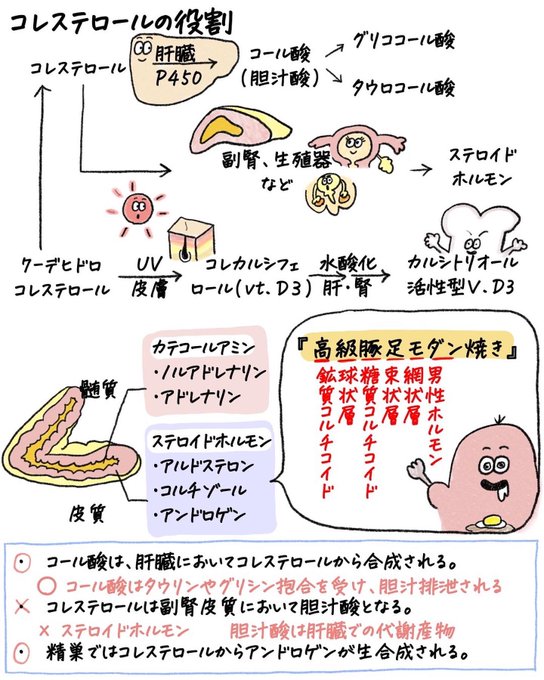 コレステロールの役割
コレステロール
肝臓
P450
コール酸
(胆汁酸)
グリココール酸
タウロコール酸
副腎、生殖器
など
ステロイド
ホルモン
7-デヒドロ
コレステロール
UV
皮膚
コレカルシフェ
ロール(vt.D3)
水酸化
肝・腎
カルシトリオール
活性型V.D3
髄質
皮質
カテコールアミン
・ノルアドレナリン
・アドレナリン
ステロイドホルモン
・アルドステロン
・コルチゾール
・アンドロゲン
『高級豚足モダン焼き』
鉱質コルチコイド
球状層
糖質コルチコイド
束状層
網状層
男性ホルモン
コール酸は、肝臓においてコレステロールから合成される。
○ コール酸はタウリンやグリシン抱合を受け、胆汁排泄される
× コレステロールは副腎皮質において胆汁酸となる。
× ステロイドホルモン 胆汁酸は肝臓での代謝産物
精巣ではコレステロールからアンドロゲンが生合成される。